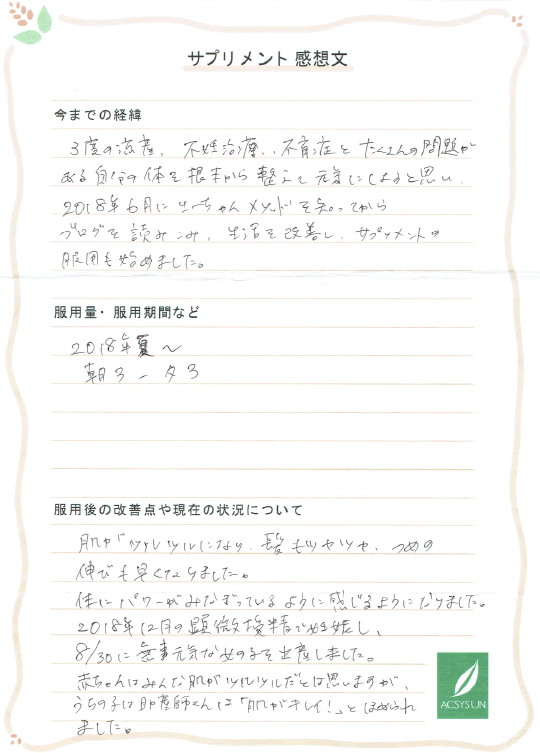 サプリメント 感想文
今までの経緯
3度の流産、不妊治療、不育症と たくさんの問題が
ある自分の体を根本から整えて元気にしようと思い、
2018年6月に ちゃんメソッドを知ってから
ブログを読みこみ、生活を改善し、サプリメントの
服用も始めました。
服用量・服用期間など
2018年夏～
朝3 - 夕3
服用後の改善点や現在の状況について
肌がツルツルになり、髪もツヤツヤ、つめの
伸びも早くなりました。
体にパワーがみなぎっているように感じるようになりました。
2018年12月の顕微授精で妊娠し、
8/30に無事元気な女の子を出産しました。
赤ちゃんはみんな肌がツルツルだとは思いますが、
うちの子は助産師さんに「肌がキレイ!」とほめられ
ました。
ACSYSUN